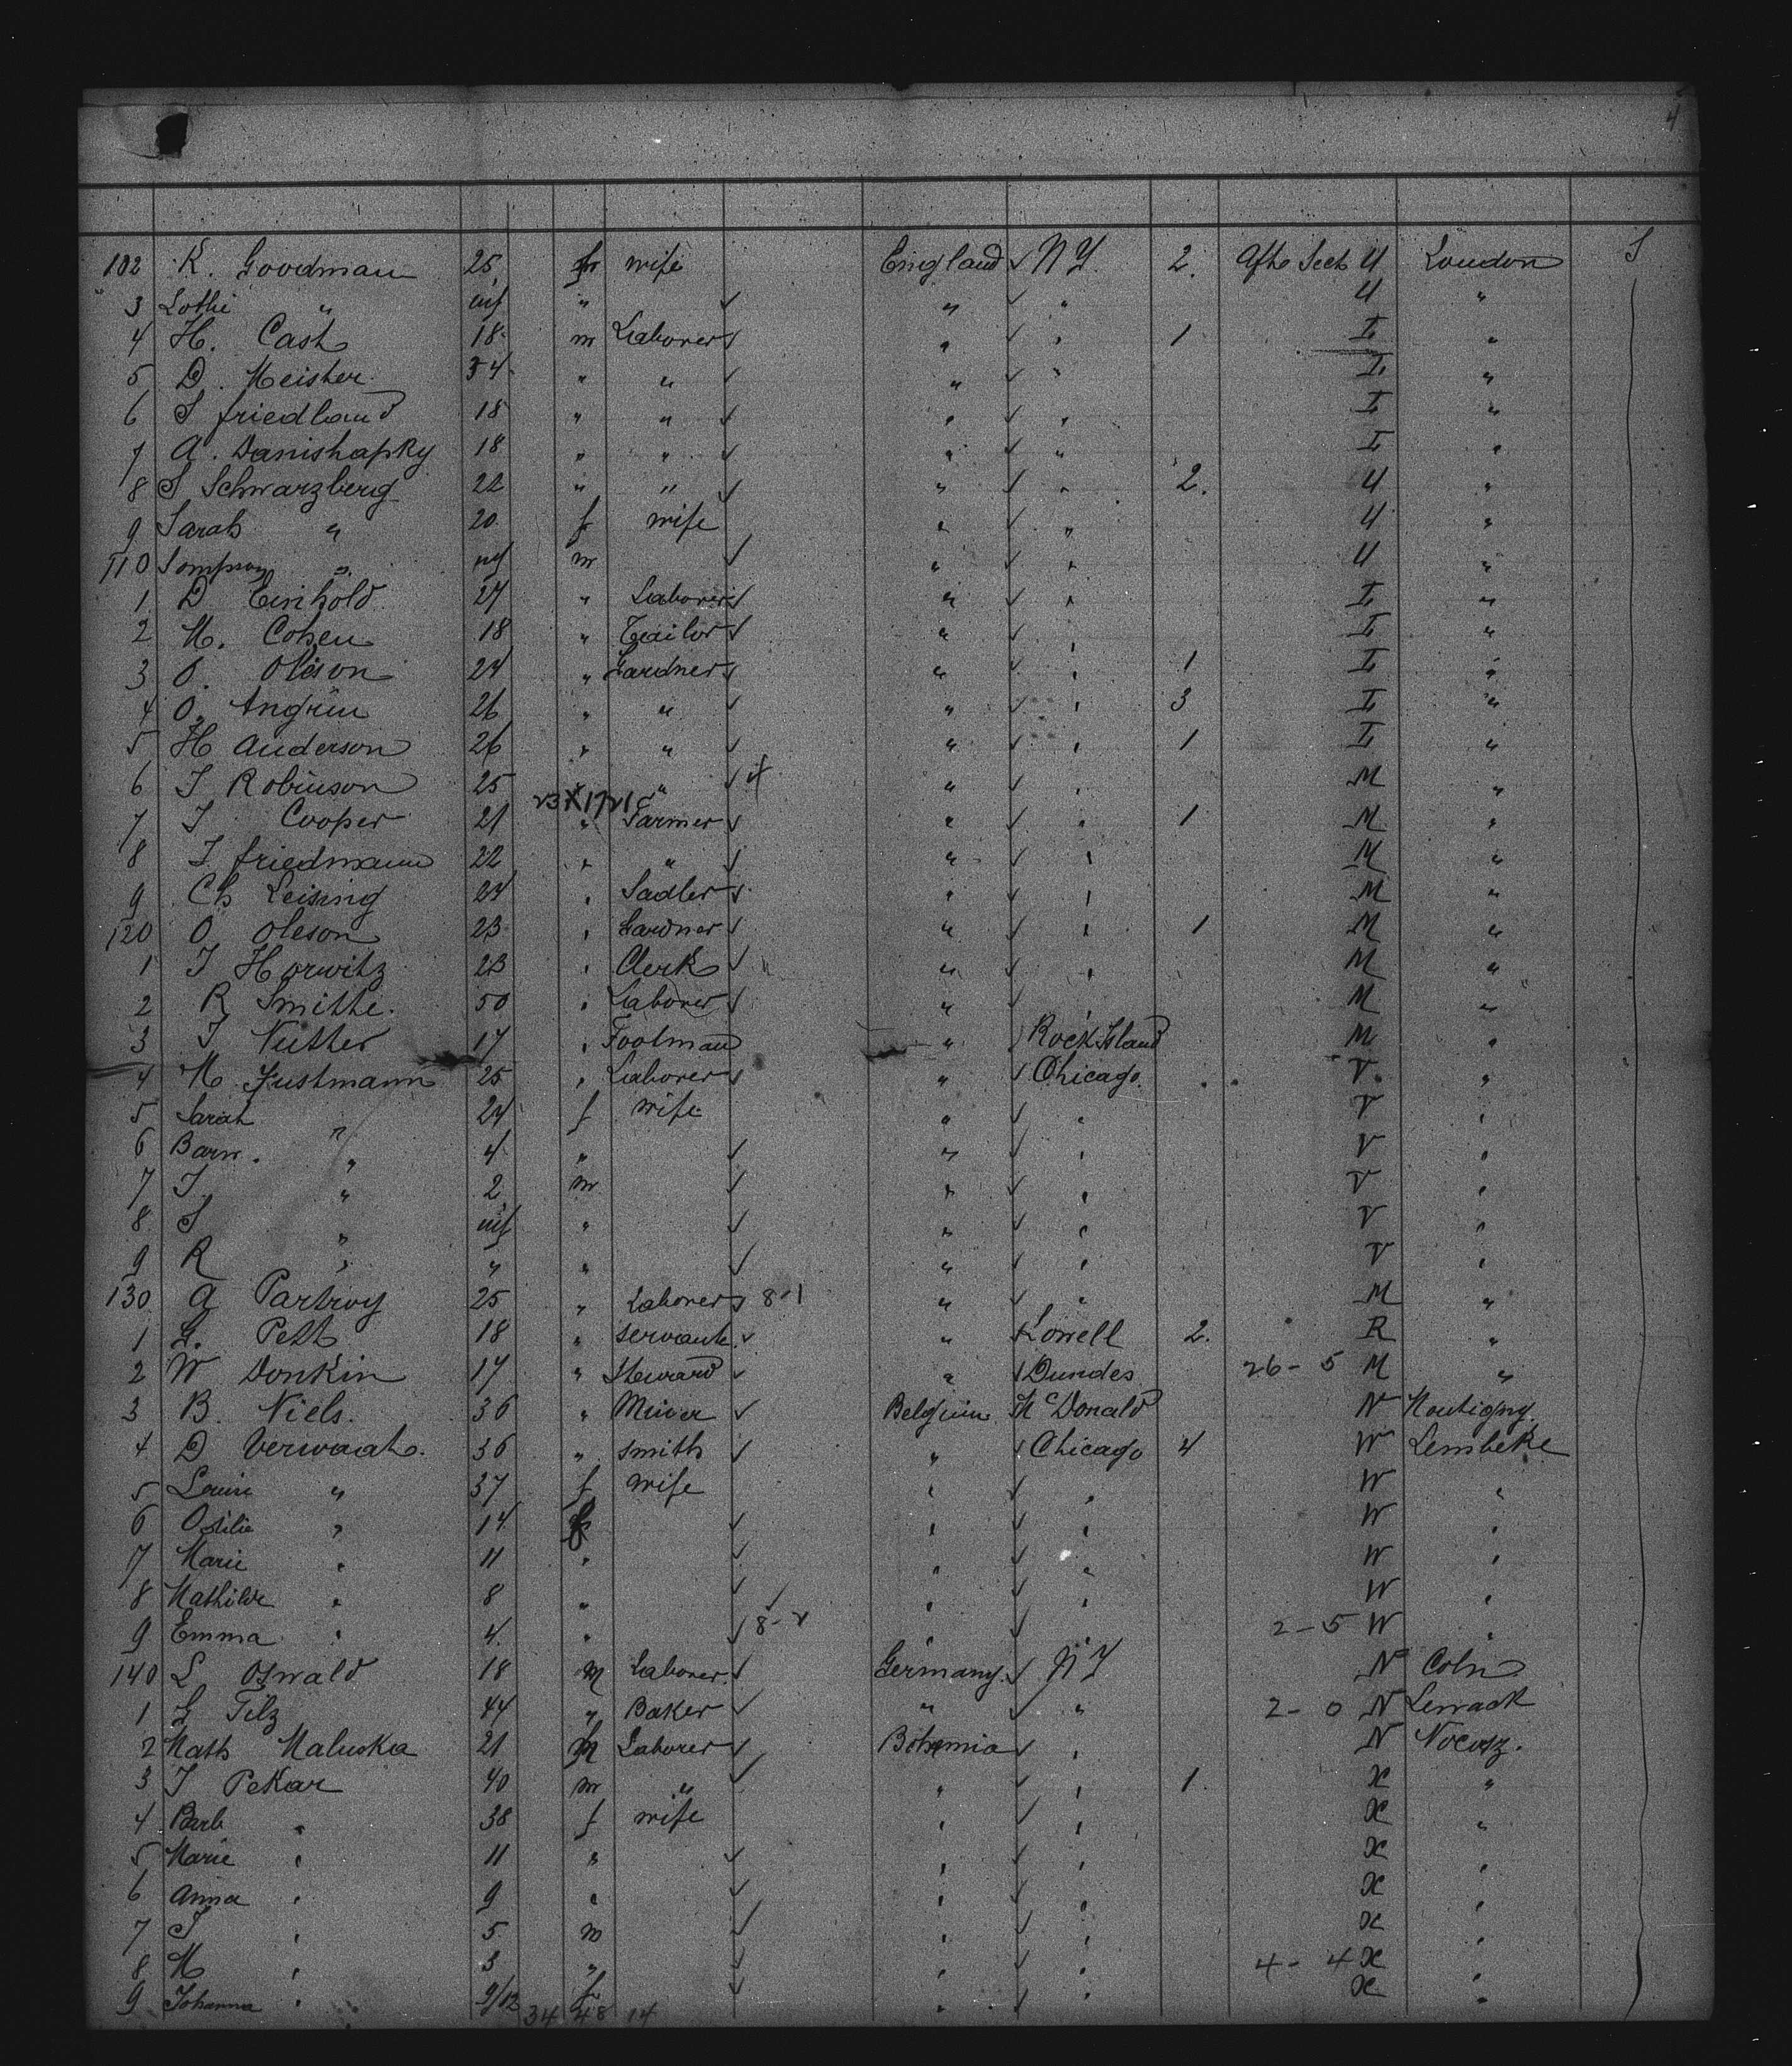 4
102 K. Goodman 25 f wife England ✓ N Y. 2. Afte Sect U London S
3 Lothi " inf " ✓ " ✓ " U "
4 H. Cash 18 m Laborer ✓ " ✓ " 1 L "
5 D. Meister 34 " " ✓ " ✓ " L "
6 S friedland 18 " " ✓ " ✓ " L "
7 A. Danishapky 18 " " ✓ " ✓ " L "
8 S Schwarzberg 22 " " ✓ " ✓ " 2. U "
9 Sarah " 20 f wife " ✓ " U "
110 Sompson " inf m ✓ " ✓ " U "
1 D Einhold 27 " Laborer ✓ " ✓ " L "
2 M. Cohen 18 " Tailor ✓ " ✓ " L "
3 O. Oleson 24 " Gardner ✓ " ✓ " 1 L "
4 O. Angrim 26 " " ✓ " ✓ " 3 L "
5 H Anderson 26 " " ✓ " ✓ " 1 L "
6 J Robinson 25 " ✓ 4 " ✓ " M "
23 X 1721
7 J Cooper 21 " Farmer ✓ " ✓ " 1 M "
8 J friedmann 22 " " ✓ " ✓ " M "
9 Ch Leising 24 " Sadler ✓ " ✓ " M "
120 O Oleson 23 " Gardner ✓ " ✓ " 1 M "
1 J Horwitz 23 " Clerk ✓ " ✓ " M "
2 R Smithe. 50 " Laborer ✓ " ✓ " M "
3 J Nutter 17 " Footman " Rock Island M "
4 M. Justmann 25 " Laborer ✓ " ✓ Chicago. V "
5 Sarah " 24 f wife " ✓ " V "
6 Barn. " 4 " ✓ " ✓ " V "
7 J. " 2 m ✓ " ✓ " V "
8 S " inf " ✓ " ✓ " V "
9 R " " " ✓ " ✓ " V "
130 A Partroy 25 " Laborer ✓ 8-1 " ✓ " M "
1 G. Pett 18 " servant ✓ " Lowell 2. R "
2 W Donkin 17 " Steward ✓ " ✓ Dundes 26-5 M "
3 B. Niels. 36 " Miner ✓ Belgium Mc Donald N Montigny.
4 D Verwaah. 36 " smith ✓ " ✓ Chicago 4 W Lembeke
5 Louise " 37 f wife " ✓ " W "
6 Otilie " 14 f ✓ " ✓ " W "
7 Marie " 11 " ✓ " ✓ " W "
8 Mathilde " 8 " ✓ " ✓ " W "
9 Emma " 4. " ✓ 8-2 " ✓ " 2-5 W "
140 L Oswald 18 m Laborer ✓ Germany ✓ N Y N Coln
1 G Tilz 44 " Baker ✓ " ✓ " 2-0 N Lewack
2 Math Maluska 21 m Laborer ✓ Bohemia ✓ " N Nocusz.
3 J Pekar 40 m " ✓ " ✓ " 1. X "
4 Barb " 38 f wife " ✓ " X "
5 Marie " 11 " ✓ " ✓ " X "
6 Anna " 9 " ✓ " ✓ " X "
7 J " 5 m ✓ " ✓ " X "
8 M " 3 " ✓ " ✓ " 4-4 X "
9 Johanna " 9/12 f ✓ " ✓ " X "
34 48 14